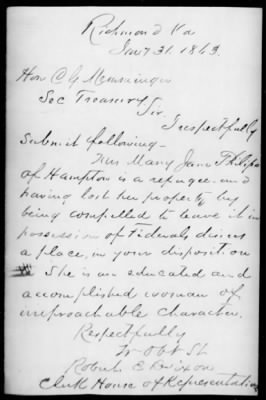 Richmond Va
Jany 31. 1863.
Hon C G Memminger
Sec Treasury
Sir
I respectfully
Submit following—
Miss Mary Jane Philips
of Hampton is a refugee, and
having lost her property by
being compelled to leave it in
possession of Federals desires
a place, in your disposition
She is an educated and
accomplished woman of
irreproachable character.
Respectfully
Yr Obt St
Robert E Dixon
Clerk House of Representatives